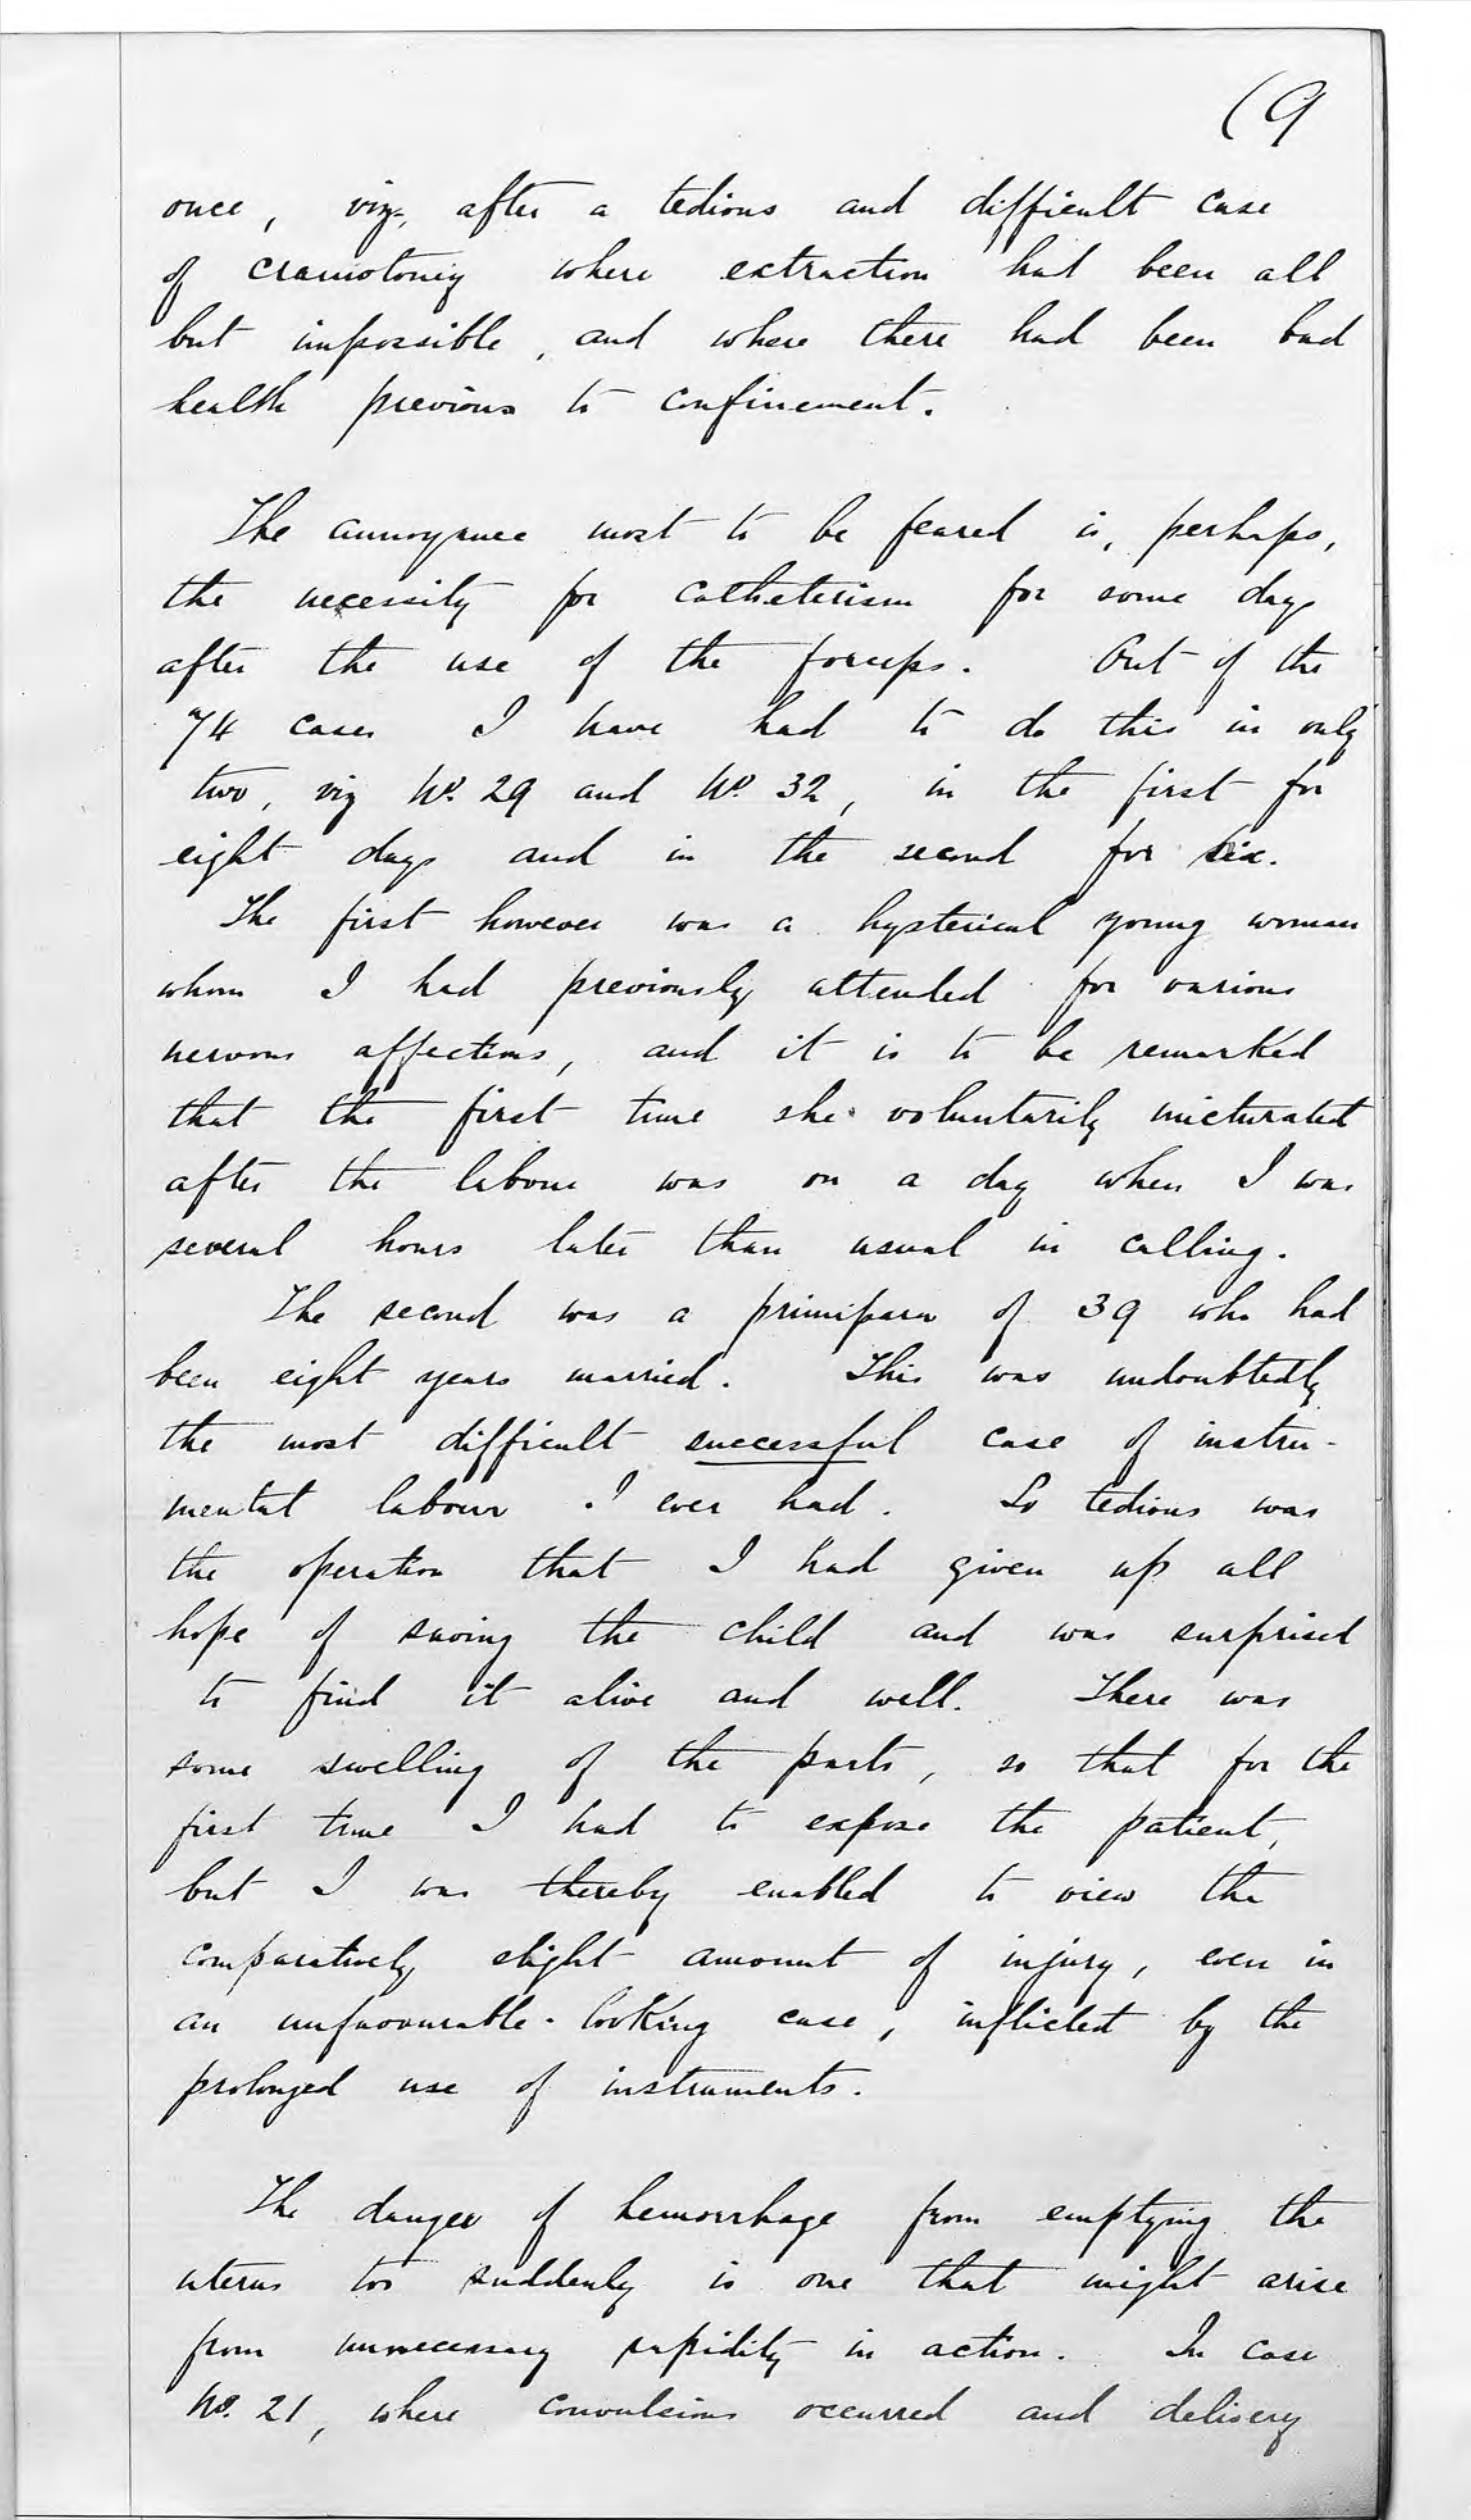 (9
once, viz, after a tedious and difficult case
of craniotomy where extraction had been all
but impossible, and where there had been bad
health previous to confinement.
The annoyance most to be feared is, perhaps,
the necessity for catheterism for some days
after the use of the forceps. Out of the
74 cases I have had to do this in only
two, viz No. 29 and No. 32, in the first for
eight days and in the second for six.
The first however was a hysterical young woman
whom I had previously attended for various
nervous affections, and it is to be remarked
that the first time she voluntarily micturated
after the labour was on a day when I was
several hours later than usual in calling.
The second was a primipara of 39 who had
been eight years married. This was undoubtedly
the most difficult successful case of instru-
mental labour I ever had. So tedious was
the operation that I had given up all
hope of saving the child and was surprised
to find it alive and well. There was
some swelling of the parts, so that for the
first time I had to expose the patient,
but I was thereby enabled to view the
comparatively slight amount of injury, even in
an unfavourable-looking case, inflicted by the
prolonged use of instruments.
The danger of hemorrhage from emptying the
uterus too suddenly is one that might arise
from unnecessary rapidity in action. In case
No. 21, where convulsions occurred and delivery